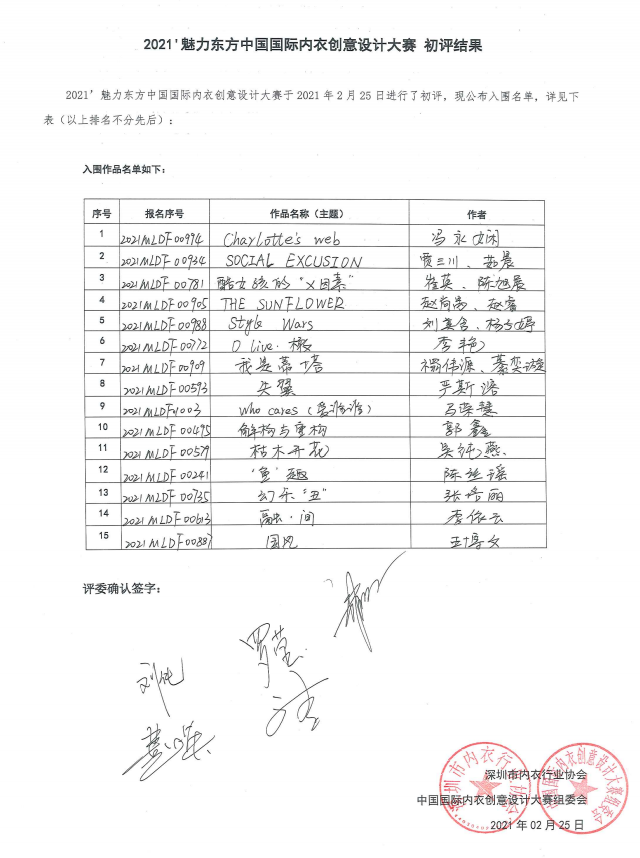 2021'魅力东方中国国际内衣创意设计大赛 初评结果
2021’魅力东方中国国际内衣创意设计大赛于 2021 年 2 月 25 日进行了初评，现公布入围名单，详见下
表（以上排名不分先后）：
入围作品名单如下：
序号 报名序号 作品名称（主题） 作者
1 2021MLDF00974 Charlotte's web 冯永娴
2 2021MLDF00934 SOCIAL EXCUSION 贾三川、
3 2021MLDF00781 酷女孩的“X因素” 崔英、陈旭晨
4 2021MLDF00905 THE SUNFLOWER 赵
5 2021MLDF00988 Style Wars 刘
6 2021MLDF00772 O live·橄 李艳
7 2021MLDF00909 我是慕塔
8 2021MLDF00593 失翼 严斯
9 2021MLDF01003 who cares（爱谁谁） 马荣慧
10 2021MLDF00495 解构与重构 郭鑫
11 2021MLDF00579 枯木开花 吴纯燕
12 2021MLDF00241 ‘鱼’趣 陈丝瑶
13 2021MLDF00735 幻乐“丑” 张培丽
14 2021MLDF00613 融·间 李依云
15 2021MLDF00887 国风 王博文
评委确认签字：
罗莹
深圳市内衣行业协会
中国国际内衣创意设计大赛组委会
2021 年 02 月 25 日